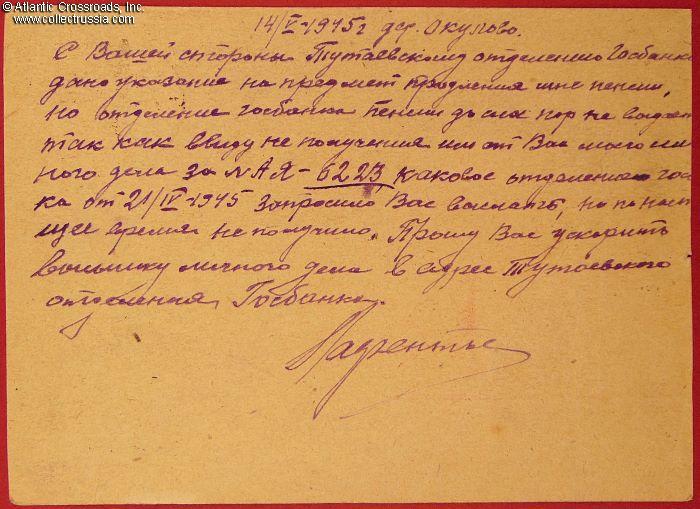 © Atlantic Crossroads, Inc.
www.collectrussia.com
14/V-1945г дер. Окулово.
С Вашей стороны Тутаевскому отделению Госбанка
дано указание на предмет продления мне пенсии,
но отделение госбанка пенсии до сих пор не выдает
так как ввиду не получения им от Вас моего лич
ного дела за № АЯ-6223 каковое отделение госбан
ка от 21/IV-1945 запросило Вас выслать, но по насто
щее время не получило. Прошу Вас ускорить
высылку личного дела в адрес Тутаевского
отделения Госбанка.
Лаврентье